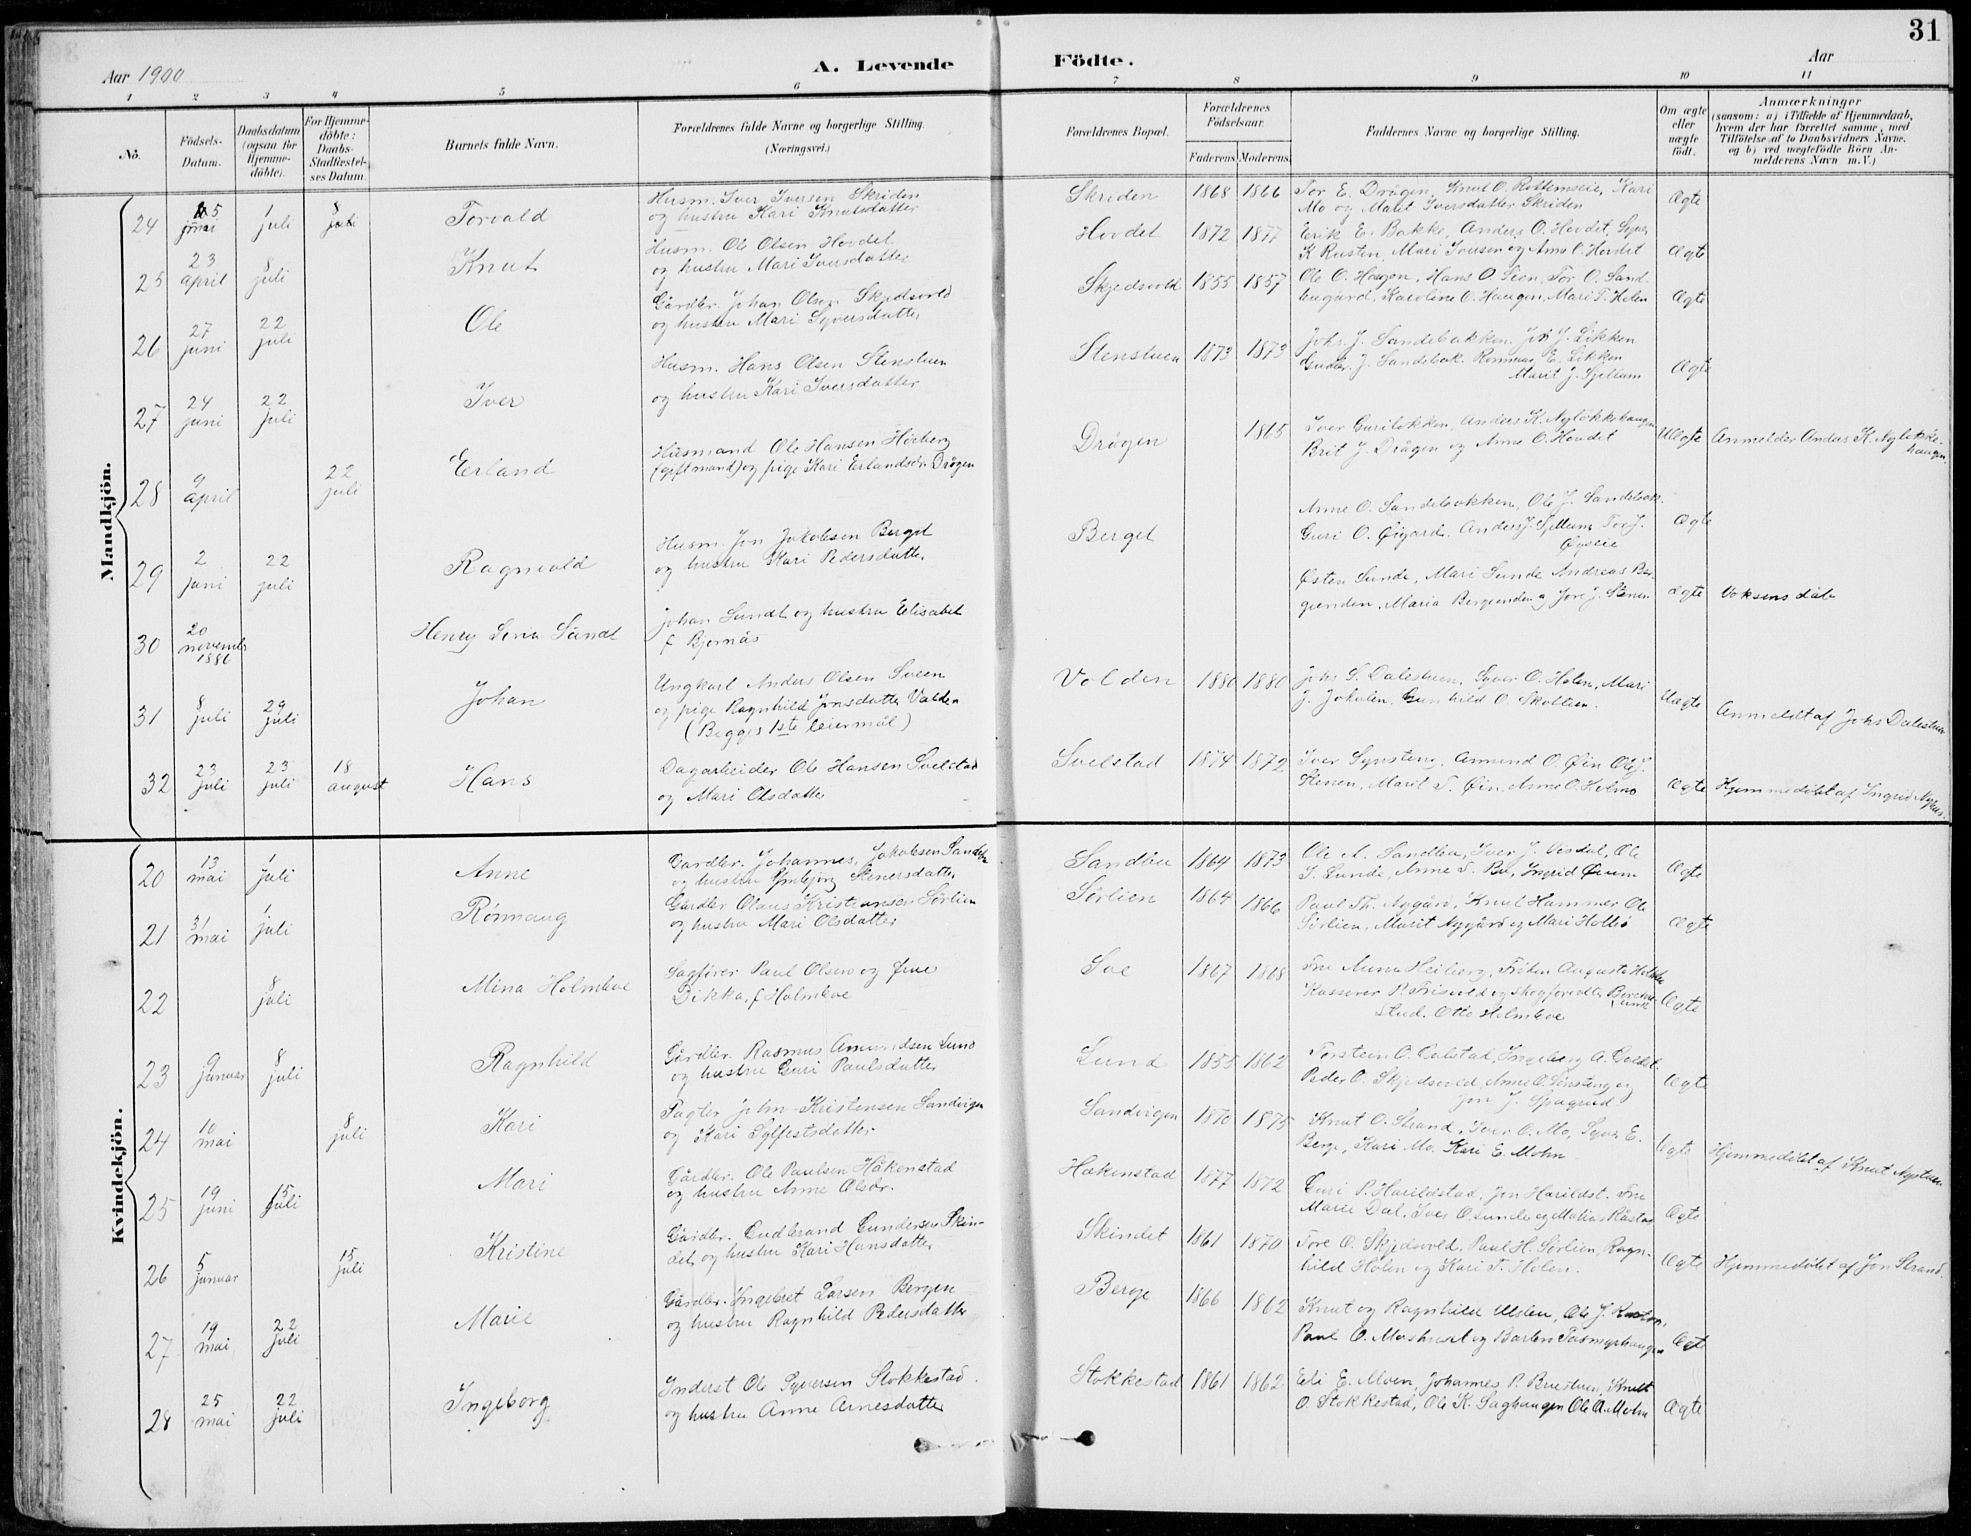 31
Aar 1900
A. Levende Födte.
Aar
1 2 3 4 5 6 7 8 9 10 11
No.
Födsels-Datum.
Daabsdatum (ogsaa for Hjemme-döbte).
For Hjemme-döbte: Daabs-Stadfæstel-ses Datum.
Barnets fulde Navn.
Forældrenes fulde Navne og borgerlige Stilling. (Næringsvei.)
Forældrenes Bopæl.
Forældrenes Födselsaar.
Faderens Moderens
Faddernes Navne og borgerlige Stilling.
Om ægte eller uægte födt.
Anmærkninger
(saasom: a) i Tilfælde af Hjemmedaab, hvem der har forrettet samme, med Tilföielse af to Daabsvidners Navne, og b) ved uægtefödte Börn Anmelderens Navn m.V.)
Mandkjön.
24 juli 8 juli Torvald
Husm. Iver Iversen Skriden
og hustru Kari Knutsdatter
Skriden 1868 1866
Tor E. Drågen, Knut O. Rottemseie, Kari
Mo og Marit Iversdatter Skriden
Ægte
25 23 april 8 juli Knut
Husm. Ole Olsen Hovdet
og hustru Mari Iversdatter
Hovdet 1872 1877
Erik E. Bakke, Anders O. Hovdet, Syver
K Rusten, Mari Iversen og Anne O. Hovdet
Ægte
26 27 juni 22 juli Ole
Gårdbr. Johan Olsen Skjedsvold
og hustru Mari Syversdatter
Skjedsvold 1855 1857
Ole O. Haugen, Hans O. Teen, Tor O. Sand-
bugård, Karoline O. Haugen, Mari T. Holen
Ægte
27 24 juni 22 juli Iver
Husm. Hans Olsen Stenstuen
og hustru Kari Iversdatter
Stenstuen 1873 1873
Johs. J. Sandebakken, J. Likken
J. Sandebak. E. Likken
Marit J. Sjellum
Ægte
28 9 april 22 juli Erland
Husmand Ole Hansen Hörberg
(gift mand) og pige Kari Erlandsdr. Drågen
Drågen 1865
Iver Gurilökken, Anders K. Nylökkehaugen
Brit J. Drågen og Anne O. Hovdet
Uægte
Anmelder Anders K. Nylökke-
haugen.
29 2 juni 22 juli Ragnvald
Husm. Jon Jakobsen Berget
og hustru Kari Pedersdatter
Berget
Anne O. Sandebakken, Ole J. Sandebak.
Guri O. Øigard. Anders J. Sjellum Tor J.
Øyseie
Ægte
30 20 november 1886 Henry Sundt
Johan Sundt og hustru Elisabet
f. Bjørnås
Østen Sunde, Mari Sunde Andreas Ber-
grenden, Maria Bergrenden og Tore J. Stenen
Ægte
Voksens dåb
31 8 juli 29 juli Johan
Ungkarl Anders Olsen Sveen
og pige Ragnhild Jonsdatter Valden
(Begges 1ste leiermål)
Volden 1880 1880
Johs S. Dalestuen, Syver O. Holen, Mari
J. Jokulen, Gunhild O. Skoltuen.
Uægte
Anmeldt af Johs Dalestuen
32 23 juli 23 juli 18 august Hans
Dagarbeider Ole Hansen Svelstad
og Mari Olsdatter
Svelstad 1874 1872
Iver Synsteng, Amund O. Øin Ole J.
Stenen, Marit T. Øin, Anne O. Holmo
Ægte
Hjemmedöbt af Ingrid Nyhus.
Kvindekjön.
20 13 mai 1 juli Anne
Gardbr. Johannes Jakobsen Sandbu
og hustru Ymbjørg Stenersdatter
Sandbu 1864 1873
Ole A. Sandbu, Iver J. Visdal, Ole
T. Sunde, Anne T. Bu, Ingrid Øium
Ægte
21 31 mai 1 juli Rönnaug
Gårdbr Olaus Kristiansen Sörlien
og hustru Mari Olsdatter
Sörlien 1864 1866
Paul Th. Nygård, Knut Hammer Ole
Sörlien, Marit Nygård og Mari Holbö
Ægte
22 8 juli Mina Holmboe
Sagförer Paul Olsen og frue
Dikka, f Holmboe
Soe 1867 1868
Fru Anna Heiberg, Fröken Augusta Holmboe
Kasserer P. Frisvold og skogforvalter
Stud. Otto Holmboe
Ægte
23 9 januar 8 juli Ragnhild
Gårdbr. Rasmus Amundsen Lund
og hustru Guri Paulsdatter
Lund 1855 1862
Torstein O. Ingeborg A.
Peder O. Skjedsvold, Anne O. Synsteng og
Jon J.
Ægte
24 10 mai 8 juli Kari
Pagter John Kristensen Sandvigen
og Kari Sylfestsdatter
Sandvigen 1870 1875
Knut O. Strand, Iver O. Mo, Syver E.
Berge, Kari Mo. Kari E. Mohn
Ægte
Hjemmedöbt af Knut Nystuen
25 19 juni 15 juli Mari
Gårdbr. Ole Paulsen Håkenstad
og hustru Anne Olsdr.
Håkenstad 1877 1872
Guri P. Harildstad, Jon Harildst. Fru
Marie Dal, Iver O. Sunde og Matias Råstad
Ægte
26 5 januar 15 juli Kristine
Gårdbr. Gudbrand Gundersen Skin-
det og hustru Kari Hansdatter
Skindet 1861 1870
Tore O. Skjedsvold, Paul H. Sörlien, Ragn-
hild Holen og Kari T. Holen.
Ægte
Hjemmedöbt af Jon Strand.
27 19 mai 22 juli Marie
Gårdbr. Ingebret Larsen Bergen
og hustru Ragnhild Pedersdatter
Berge 1866 1862
Knut og Ragnhild Ulslien, Ole J. Rusten,
Paul O. Moshuset og Barbro
Ægte
28 25 mai 22 juli Ingeborg
Inderst Ole Syversen Stokkestad.
og hustru Anne Arnesdatter
Stokkestad 1861 1862
Eli E. Moen, Johannes P. Bustuen, Knut
O. Stokkestad, Ole K. Saghaugen Ole A. Mohn
Ægte